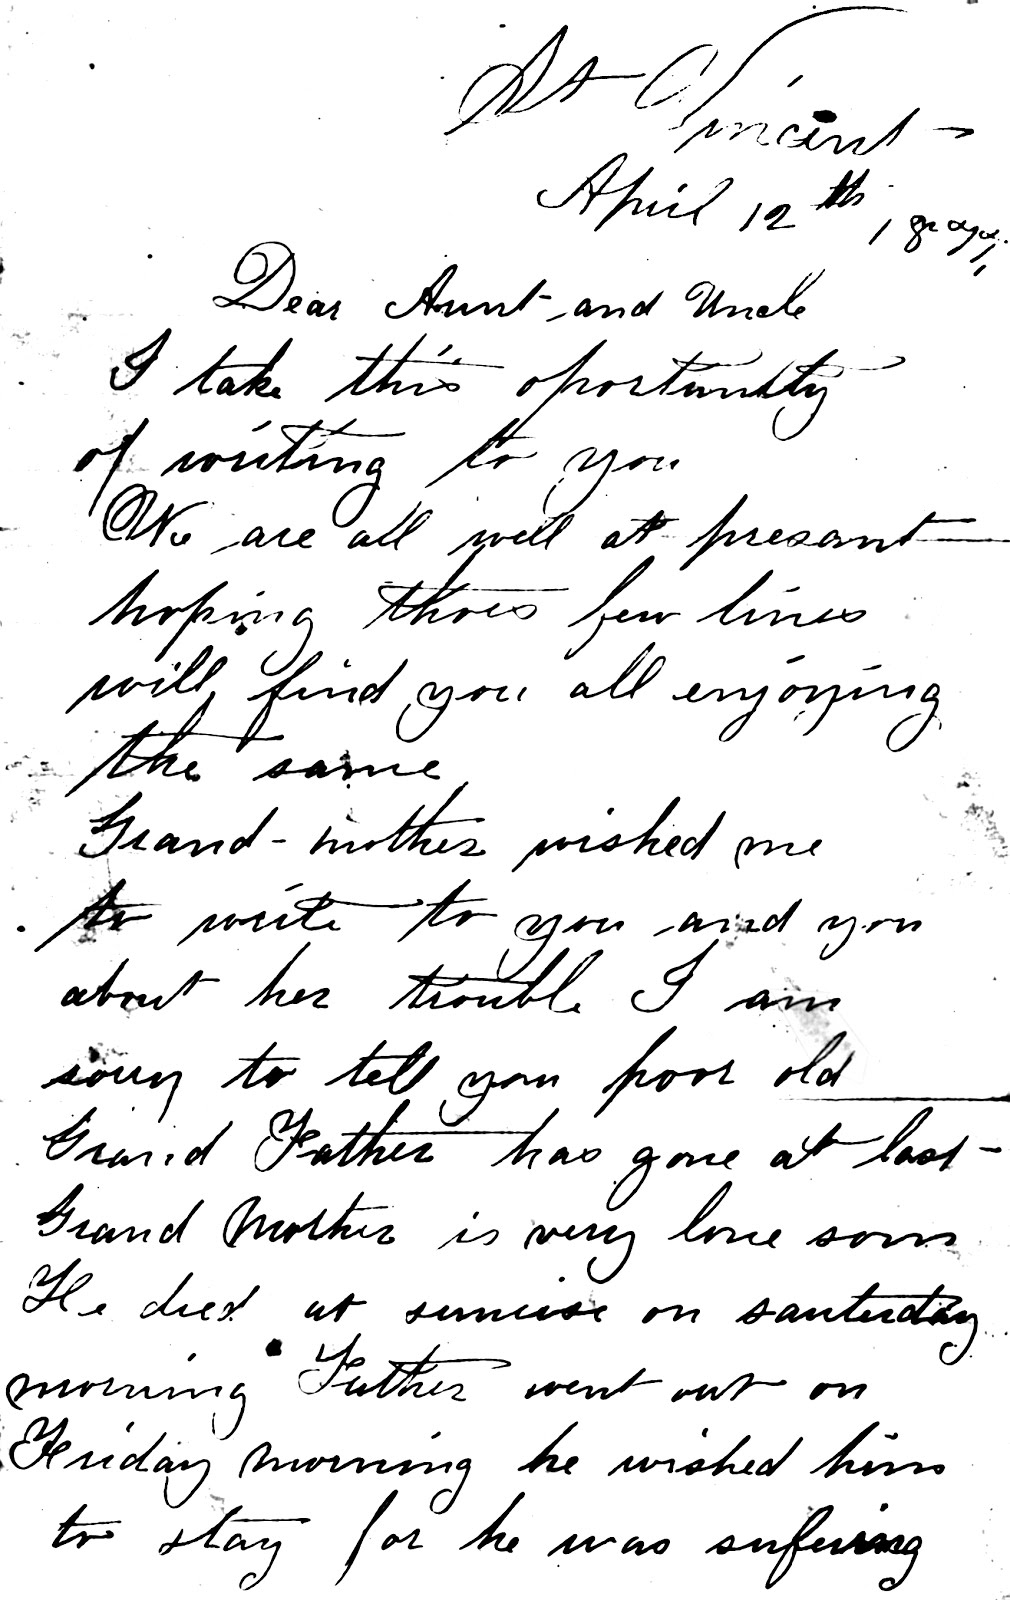 St Vincent
April 12th
Dear Aunt and Uncle
I take this oportunity
of writing to you
We are all well at presant
hoping thoes few lines
will find you all enjoying
the same
Grand-mother wished me
to write to you and you
about her trouble I am
sorry to tell you poor old
Grand Father has gone at last
Grand Mother is very lone som
He died at sunrise on santurday
morning Father went out on
Friday morning he wished him
to stay for he was sufering